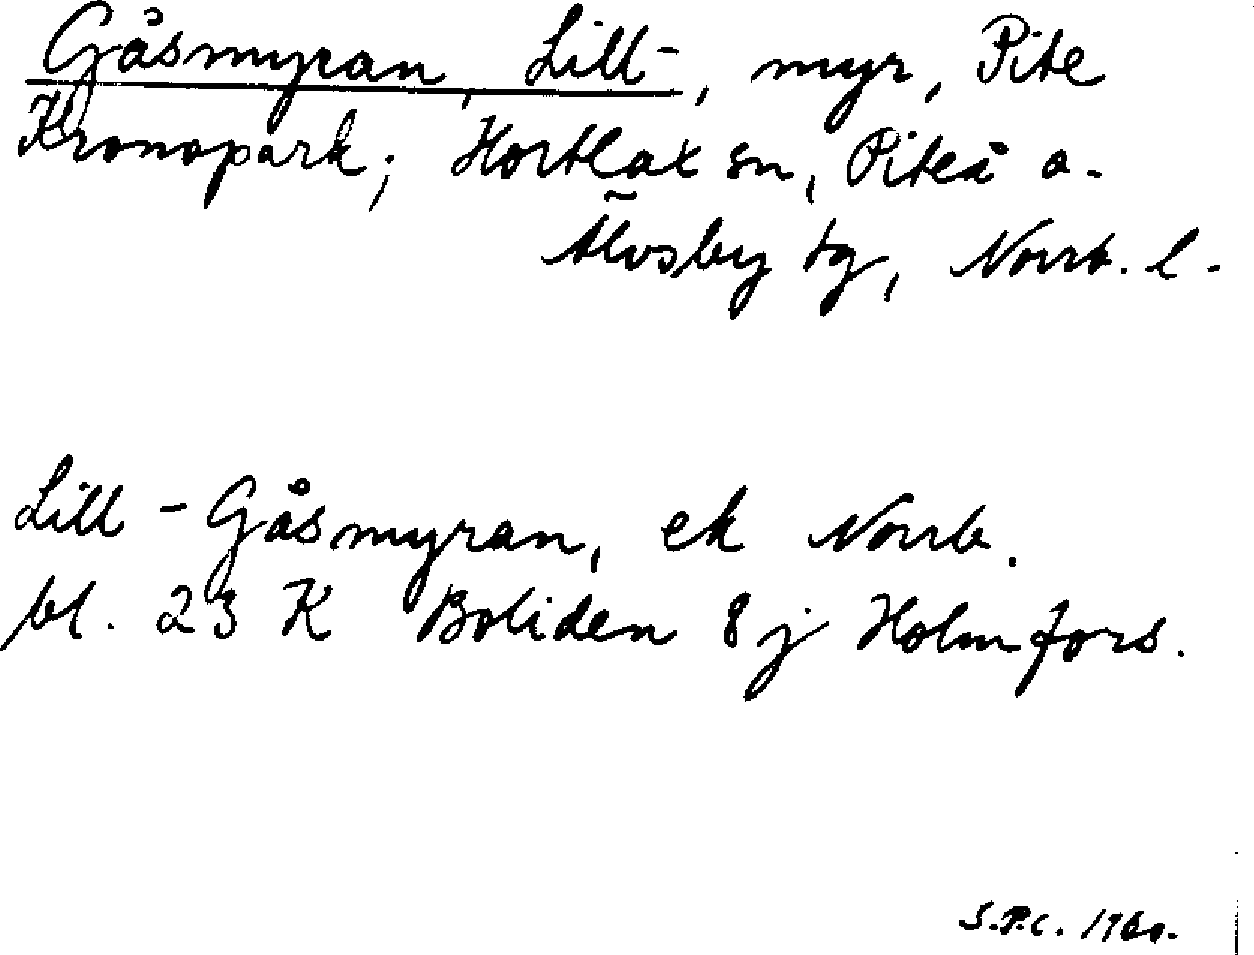 Gåsmyran, Lill-, myr, Pite
Kronopark; Hortlax sn, Piteå o.
Älvsby tg, Norrb. l.
Lill-Gåsmyran, ek Norrb.
bl. 23 K Boliden 8j Holmfors.
S.P.C. 1960.